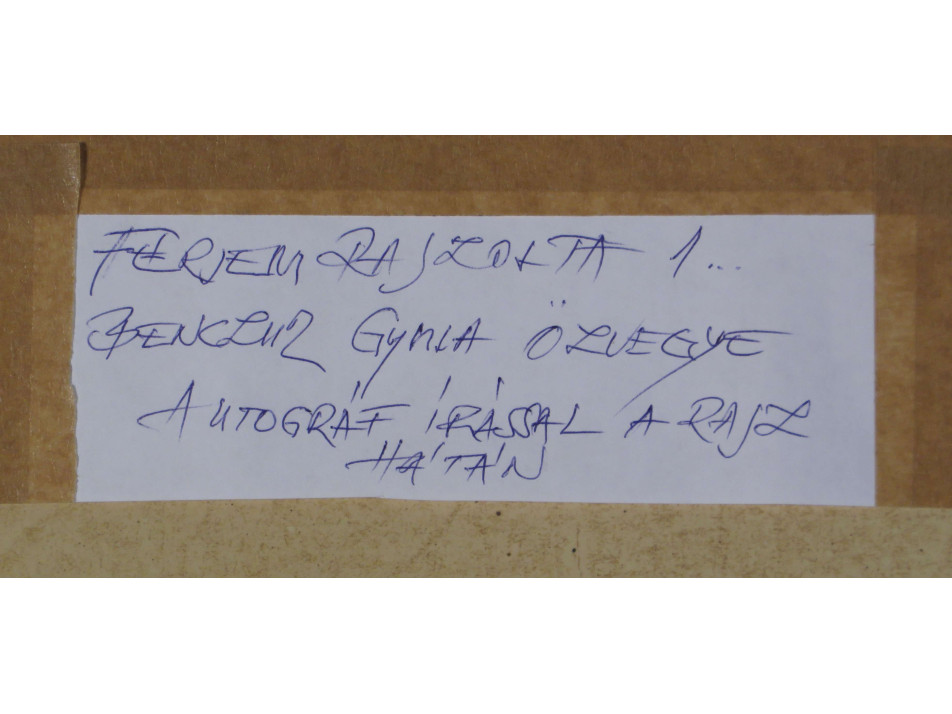 FÉRJEM RAJZOLTA 1...
BENCZUR GYULA ÖZVEGYE
AUTOGRÁF ÍRÁSSAL A RAJZ
HÁTÁN